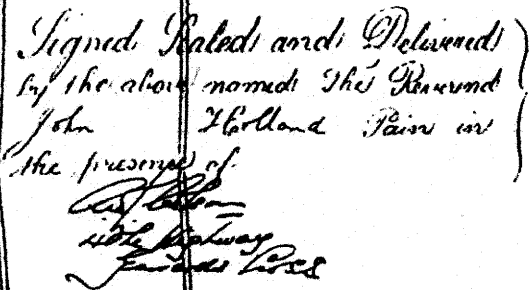 Signed Sealed and Delivered
by the above named The Reverend
John Holland Pain in
the presence of
Highway
Gerrards Cross